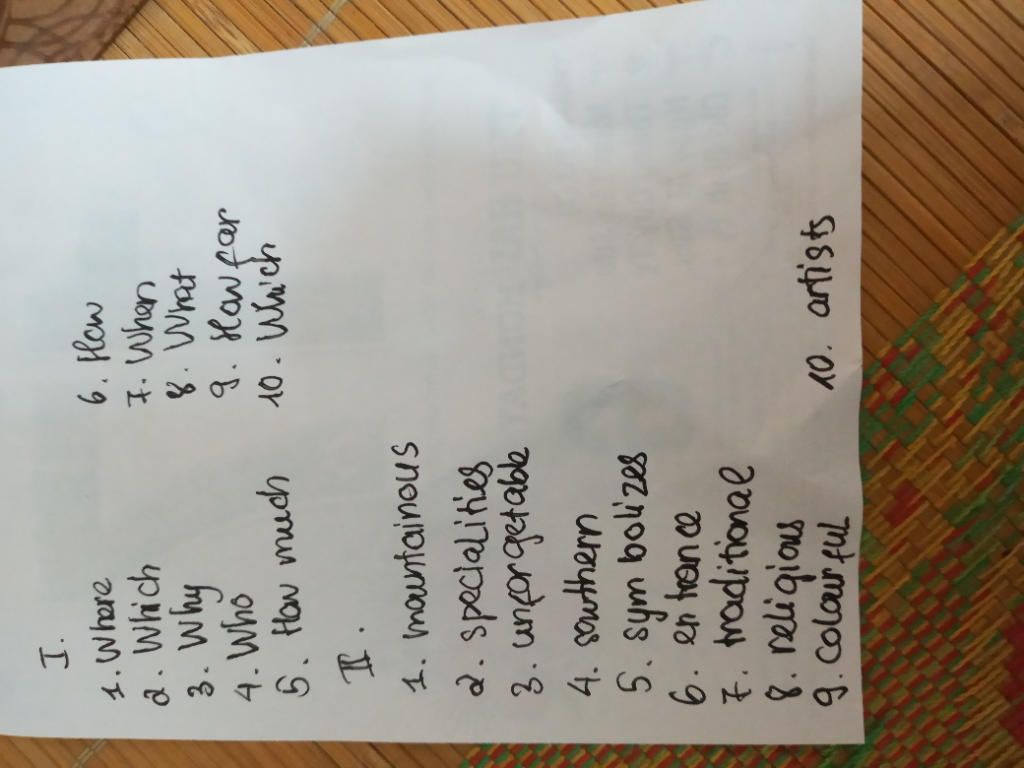 I.
1. Where
2. Which
3. Why
4. Who
5. How much
6. How
7. When
8. What
9. How far
10. Which
II.
1. mountainous
2. specialities
3. unforgetable
4. southern
5. symbolizes
6. entrance
7. traditional
8. religious
9. colourful
10. artists